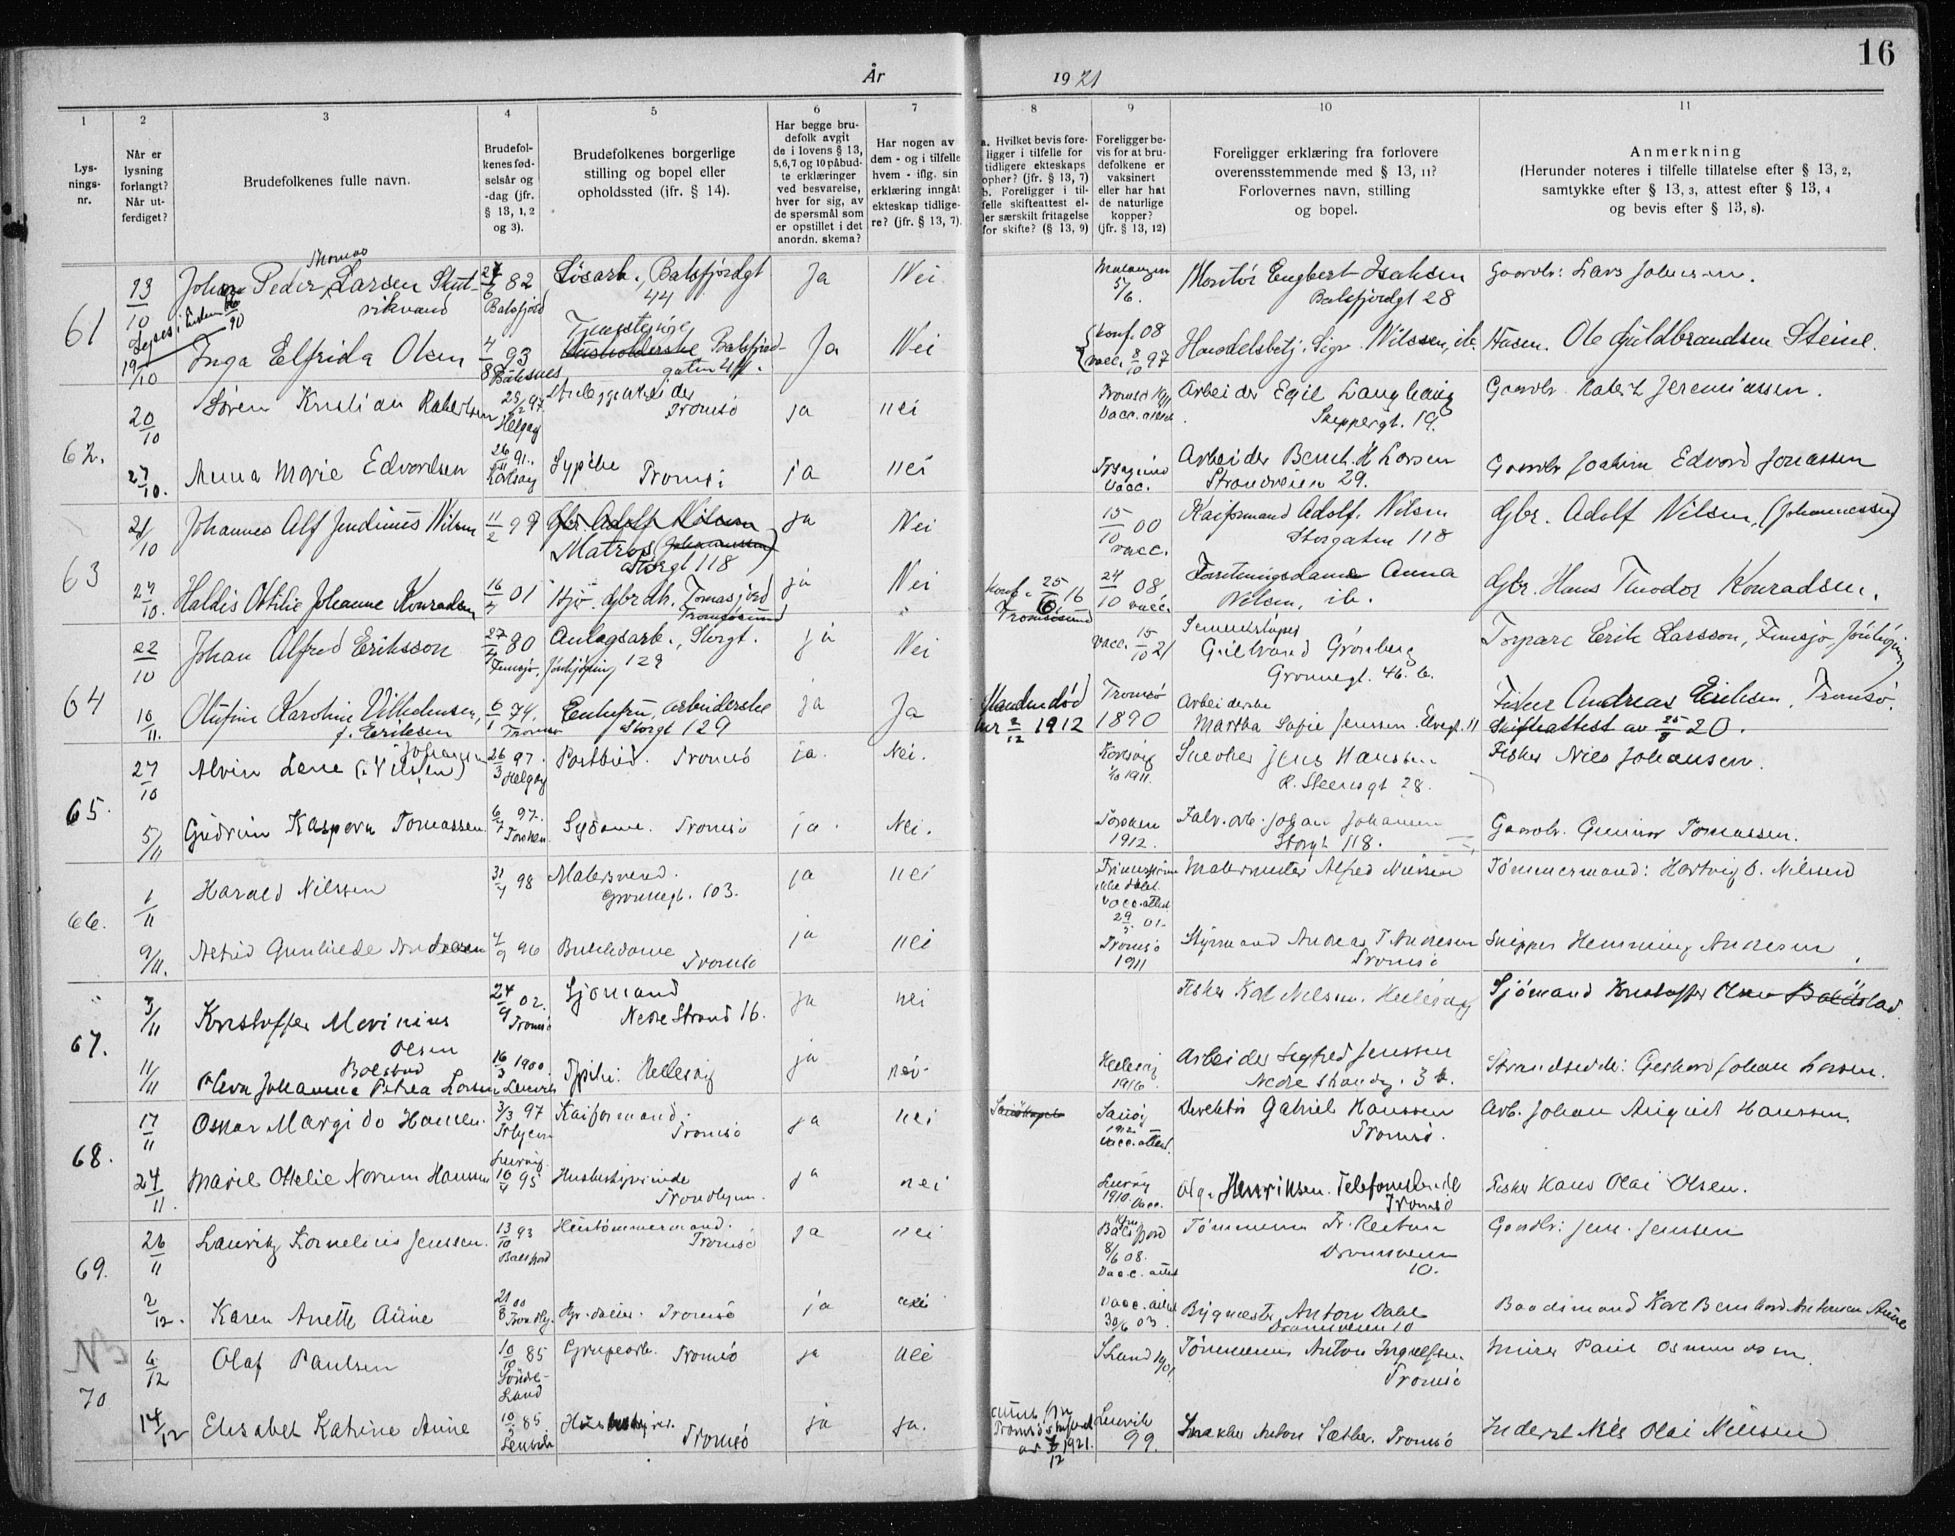 16
År 1921
1 2 3 4 5 6 7 8 9 10 11
Lys-
nings-
nr.
Når er
lysning
forlangt?
Når ut-
ferdiget?
Brudefolkenes fulle navn.
Brudefol-
kenes fød-
selsår og
-dag (jfr.
§ 13, 1, 2
og 3).
Brudefolkenes borgerlige
stilling og bopel eller
opholdssted (ifr. § 14).
Har begge bru-
defolk avgit
de i lovens § 13,
5,6,7 og 10 påbud-
te erklæringer
ved besvarelse,
hver for sig, av
de spørsmål som
er opstillet i det
anordn. skema?
Har nogen av
dem - og i tilfelle
hvem - iflg. sin
erklæring inngåt
ekteskap tidlige-
re? (jfr. § 13, 7).
a. Hvilket bevis fore-
ligger i tilfelle for
tidligere ekteskaps
ophør? (jfr. § 13, 7)
b. Foreligger i til-
felle skifteattest el-
ler særskilt fritagelse
for skifte? (§ 13, 9)
Foreligger be-
vis for at bru-
defolkene er
vaksinert
eller har hat
de naturlige
kopper?
(jfr. § 13, 12)
Foreligger erklæring fra forlovere
overensstemmende med § 13, 11?
Forlovernes navn, stilling
og bopel.
Anmerkning
(Herunder noteres i tilfelle tillatelse efter § 13, 2,
samtykke efter § 13, 3, attest efter § 13, 4
og bevis efter § 13, 8).
61
13/10 Johan Peder Larsen 82 Balsfjord Balsfjordgt 44 Ja Nei Malangen 5/6 Montør Engbert Isaksen Balsfjordgt 28 Gaardbr: Lars Johnsen.
19/10 Inga Elfrida Olsen 4/8 93 Tjenestepike Balsfjord-
gaten 44. Ja Nei konf. 08 vacc. 8/10 97 Handelsbetj. Sigv. Nilssen, ib. Ole Guldbrandsen Steine.
62.
20/10 Søren Kristian Robertsen Helgøy Tromsø ja nei Arbeider Egil Langhaug Skippergt. 19. Gaardbr. Robert Jeremiassen.
27/10. Anna Marie Edvardsen 26/11 91. Karlsøy Sypike Tromsø ja nei vacc. Arbeider Larsen Strandveien 29. Gaardbr Joakim Edvard Jonassen
63
21/10 Johannes Alf Nilsen 11/2 99 Gbr. Adolf Nilsen (Johannessen) Matros Storgt 118 ja Nei 15/10 00 vacc. Kaiformand Adolf Nilsen Storgaten 118 Gbr. Adolf Nilsen, (Johannessen)
27/10. Haldis Ottilie Johanne Konradsen 16/7 01 Tomasjord Tromsøsund ja Nei konf. 25/6 16 Tromsøsund 24/10 08 vacc. Forretningsdame Anna Nilsen, ib. Gbr. Hans Teodor Konradsen.
64
22/10 Johan Alfred Eriksson 27/4 80 Femsjø, Jönkjöping Anlegsarb., Storgt. 129 ja Nei vacc. 15/10 21 Grønberg Grønnegt. 46. b. Torpare Erik Larsson, Femsjø, Jönköping
10/11. Olufine Karoline Vilhelmsen, f. Eriksen 6/1 74. Tromsø Enkefru, arbeiderske Storgt 129 ja Ja Manden død 2/12 1912 Tromsø 1890 Arbeiderske Martha Sofie Jensen Elvegt. 11 Fisker Andreas Eriksen, Tromsø. Skifteattest av 25/8 20.
65.
27/10 Alvin Lene (Nilsen) Johansen 26/3 97. Helgøy Postbud. Tromsø ja. Nei. 1911. Snekker Jens Hanssen R. Steensgt 28. Fisker Nils Johansen.
5/11 Gudrun Kaspara Tomassen. 6/7 97. Torsken Sydame. Tromsø ja. Nei. Torsken 1912. Johan Johansen Storgt 118. Gaardbr. Gunnar Tomassen.
66.
1/11 Harald Nilssen 31/7 98 Malersvend. Grønnegt. 103. ja nei vacc. attest 29/5 01. Malermester Alfred Nilssen Tømmermand: Hartvig O. Nilssen
9/11. Astrid Gunhilde Andresen 4/9 96 Butikdame Tromsø ja nei Tromsø 1911 Styrmand Andreas T. Andresen Tromsø Skipper Hemming Andresen
67.
3/11 Kristoffer Marinius Olsen Bolstad 24/9 02. Tromsø Sjømand Nedre Strand 16. ja nei Fisker Karl Nilsen. Hellesøy Sjømand Kristoffer Olsen Bolstad
11/11 Petra Larsen 16/3 1900. Lenvik Hellesøy ja nei. 1916. Arbeider Sigfred Jenssen Nedre Strandg. 3 b. Strandsidder: Gerhard Johan Larsen.
68.
17/11 Oskar Margido Hansen. 3/3 97 Kaiformand. Tromsø ja nei 1912 vacc. attest Direktør Gabriel Hanssen Tromsø. Arb. Johan August Hanssen.
24/11. Marie Ottelie Norum Hansen Lurøy 10/4 95 Husbestyrerinde Trondhjem. ja nei Lurøy 1910. vacc. Henriksen. Telefon Tromsø Fisker Hans Olai Olsen.
69.
26/11 Lauritz Kornelius Jenssen. 13/10 93 Balsfjord Hustømmermand. Tromsø ja nei Balsfjord 8/6 08. vacc. attest Dramsveien 10. Gaardbr: Jens. Jenssen
2/12. Karen Anette Aune 21/8 00 Trondhj. Tromsø ja nei vacc. attest 30/6 03. Bygmester Anton Dahl Dramsveien 10 Baadsmand Karl Bernhard Antonsen Aune
70
6/12 Olaf Paulsen 10/10 85 Søndeland Grubearb. Tromsø ja nei Anton Tromsø Murer Paul Osmundsen.
14/12 Elisabet Katrine Aune 10/5 85 Lenvik Tromsø ja ja. Tromsø av 7/12 1921. Lenvik 99. Snekker Anton Sæther. Tromsø Inderst Nils Olai Nilssen